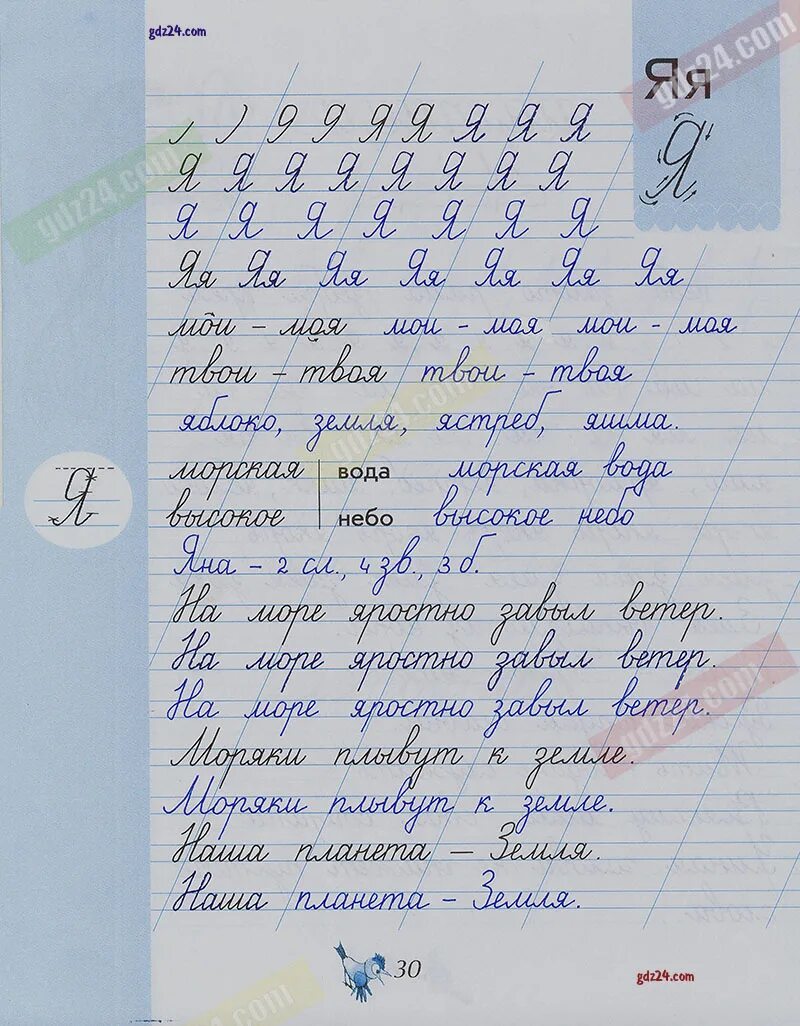 gdz24.com
gdz24.com
Яя
Я
Я Я Я Я Я
Я Я Я Я Я Я Я Я
Я Я Я Я Я Я Я
Яя Яя Яя Яя Яя Яя Яя
мои – моя мои – моя мои – моя
твои – твоя твои – твоя
яблоко, земля, ястреб, яшма.
gdz24.com
морская | вода морская вода
Я
высокое | небо высокое небо
Яна – 2 сл., 4 зв., 3 б.
На море яростно завыл ветер.
На море яростно завыл ветер.
На море яростно завыл ветер.
gdz24.com
Моряки плывут к земле.
Моряки плывут к земле.
Наша планета – Земля.
Наша планета – Земля.
30
gdz24.com
gdz24.com